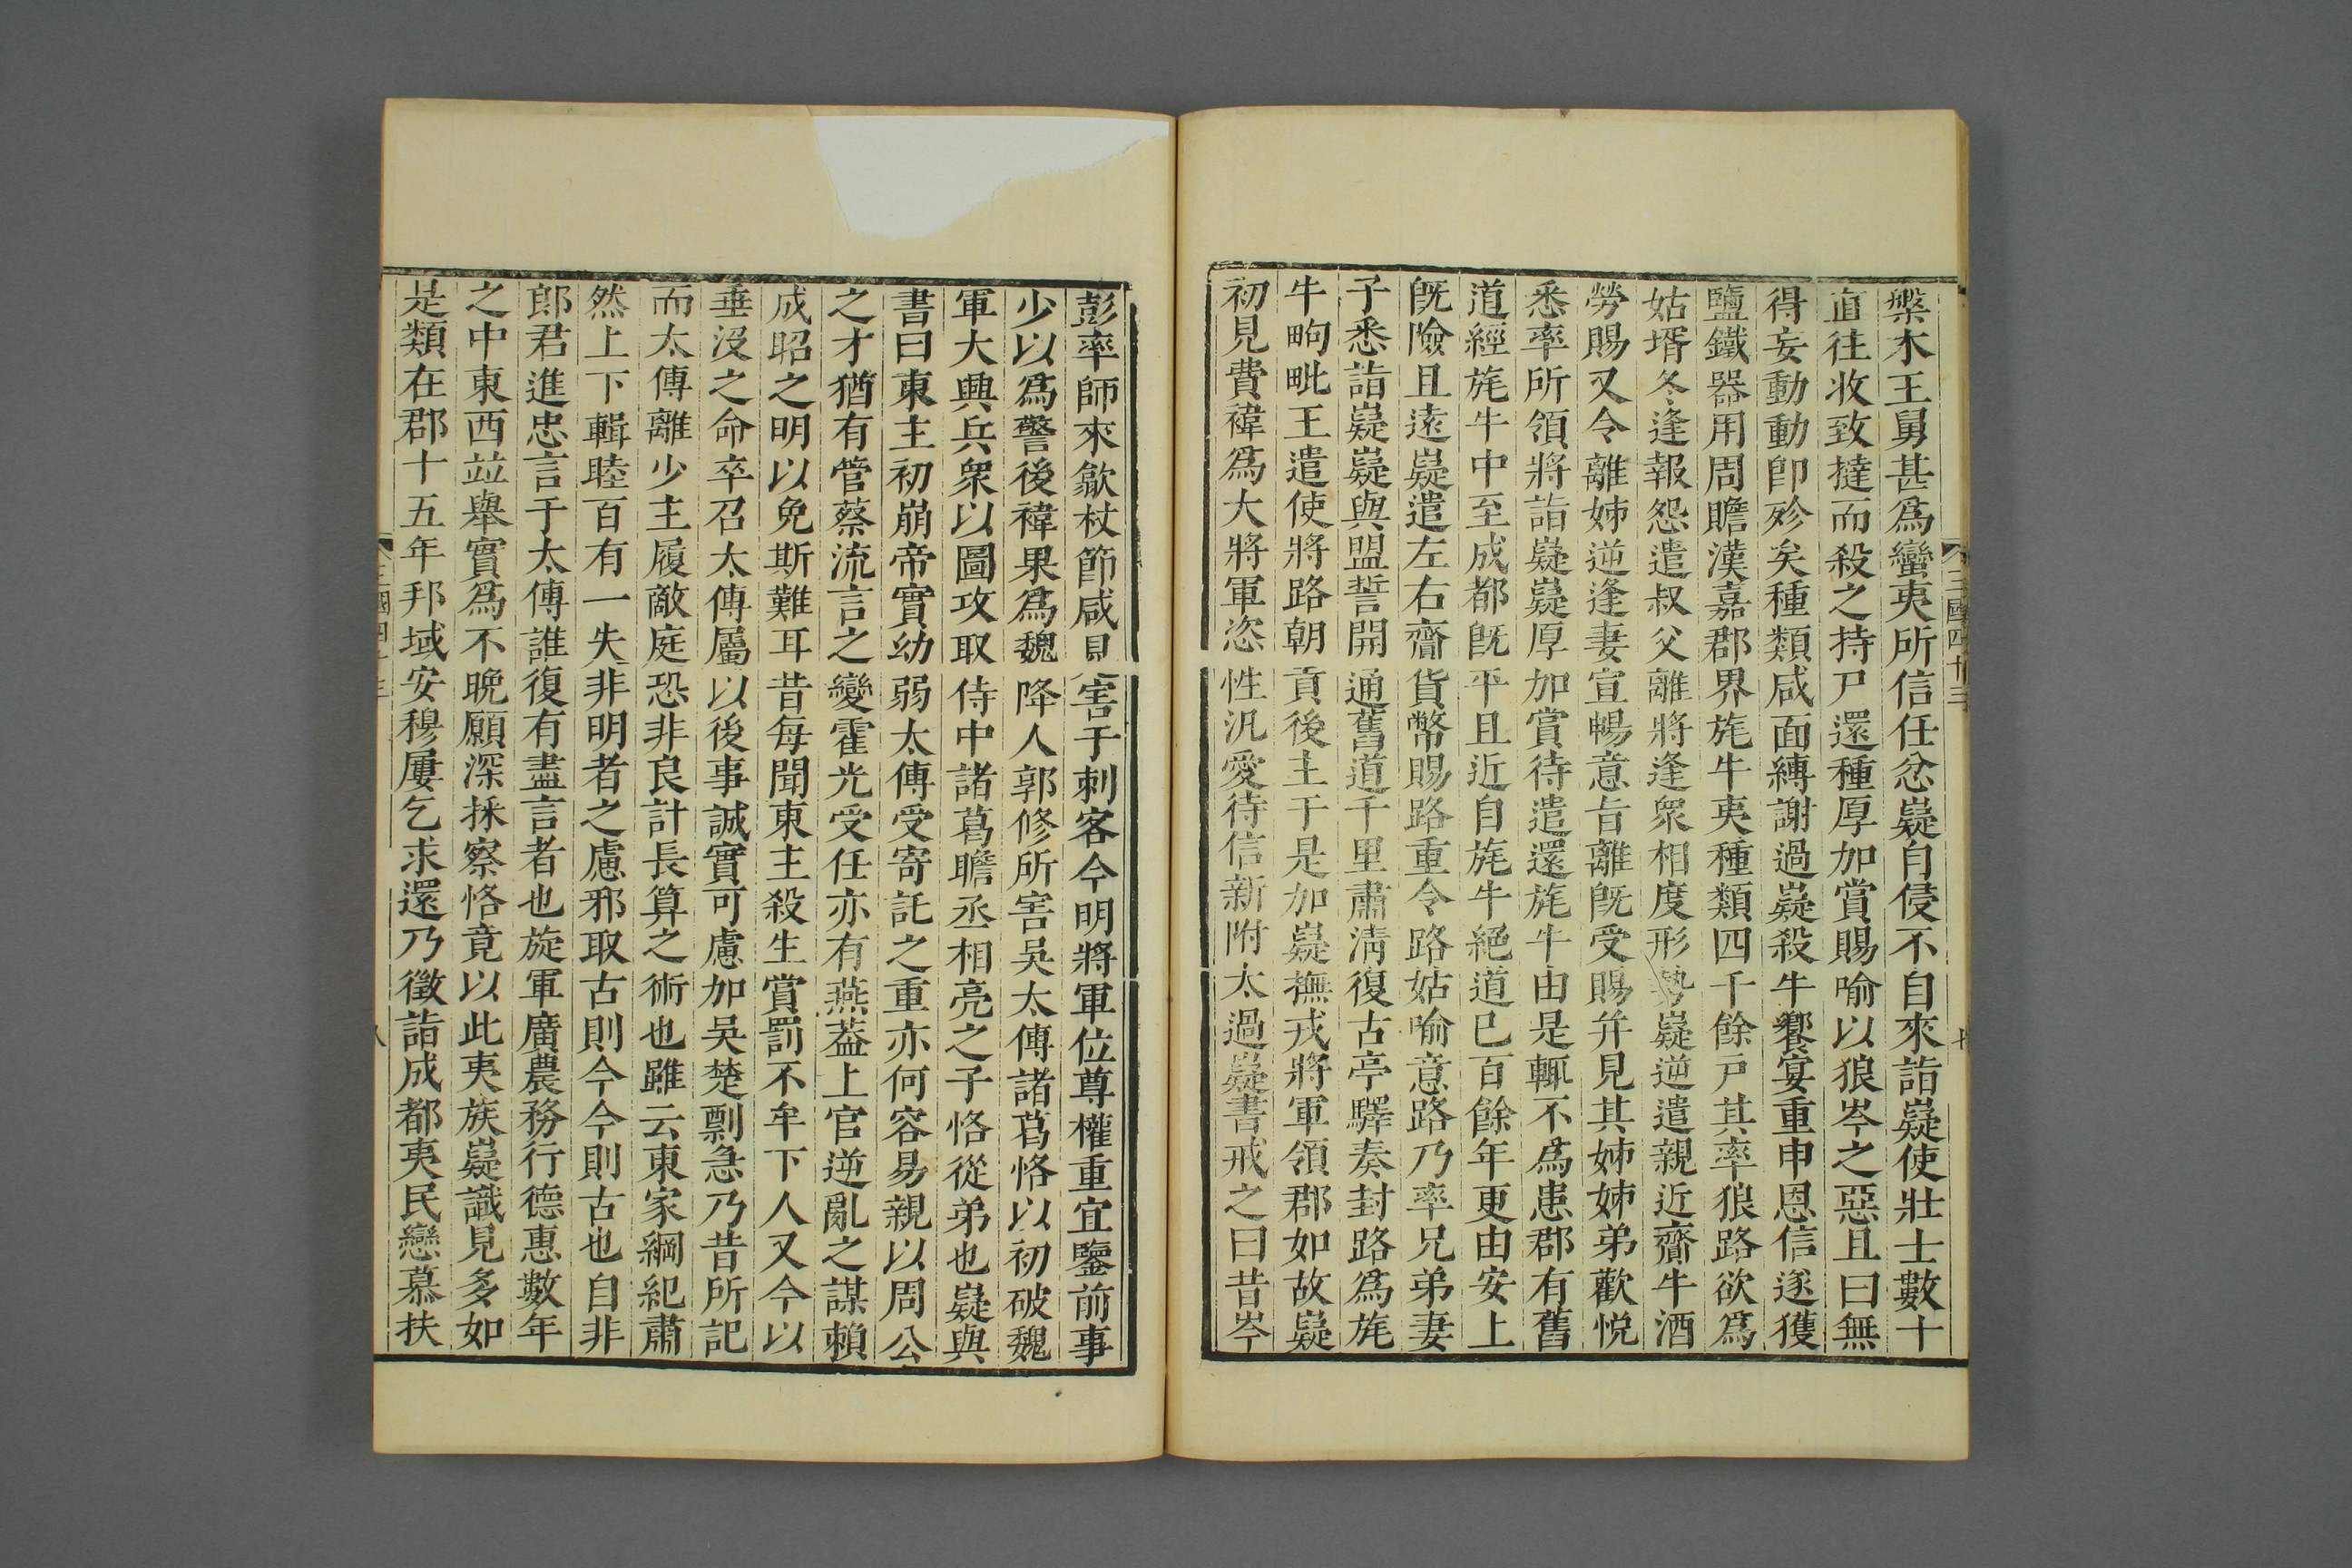 槃木王舅甚爲蠻夷所信任忿嶷自侵不自來詣嶷使壯士數十
直往收致撻而殺之持尸還種厚加賞賜喻以狼岑之惡且曰無
得妄動動卽殄矣種類咸面縛謝過嶷殺牛饗宴重申恩信遂獲
鹽鐵器用周贍漢嘉郡界旄牛夷種類四千餘戸其率狼路欲爲
姑壻冬逢報怨遣叔父離將逢衆相度形勢嶷逆遣親近齎牛酒
勞賜又令離姊逆逢妻宣暢意旨離既受賜并見其姊姊弟歡悦
悉率所領將詣嶷嶷厚加賞待遣還旄牛由是輒不爲患郡有舊
道經旄牛中至成都既平且近自旄牛絕道已百餘年更由安上
既險且遠嶷遣左右齎貨幣賜路重令路姑喻意路乃率兄弟妻
子悉詣嶷嶷與盟誓開通舊道千里肅淸復古亭驛奏封路爲旄
牛㽛毗王遣使將路朝貢後主于是加嶷撫戎將軍領郡如故嶷
初見費禕爲大將軍恣性汎愛待信新附太過嶷書戒之曰昔岑
三國四十三
七
彭率師來歙杖節咸見害于刺客今明將軍位尊權重宜鑒前事
少以爲警後禕果爲魏降人郭修所害吳太傅諸葛恪以初破魏
軍大興兵衆以圖攻取侍中諸葛瞻丞相亮之子恪從弟也嶷與
書曰東主初崩帝實幼弱太傅受寄託之重亦何容易親以周公
之才猶有管蔡流言之變霍光受任亦有燕葢上官逆亂之謀賴
成昭之明以免斯難耳昔每聞東主殺生賞罰不牟下人又今以
垂沒之命卒召太傅屬以後事誠實可慮加吳楚剽急乃昔所記
而太傅離少主履敵庭恐非良計長算之術也雖云東家綱紀肅
然上下輯睦百有一失非明者之慮邪取古則今今則古也自非
郎君進忠言于太傅誰復有盡言者也旋軍廣農務行德惠數年
之中東西竝舉實爲不晚願深採察恪竟以此夷族嶷識見多如
是類在郡十五年邦域安穆屢乞求還乃徵詣成都夷民戀慕扶
三國四十三
八